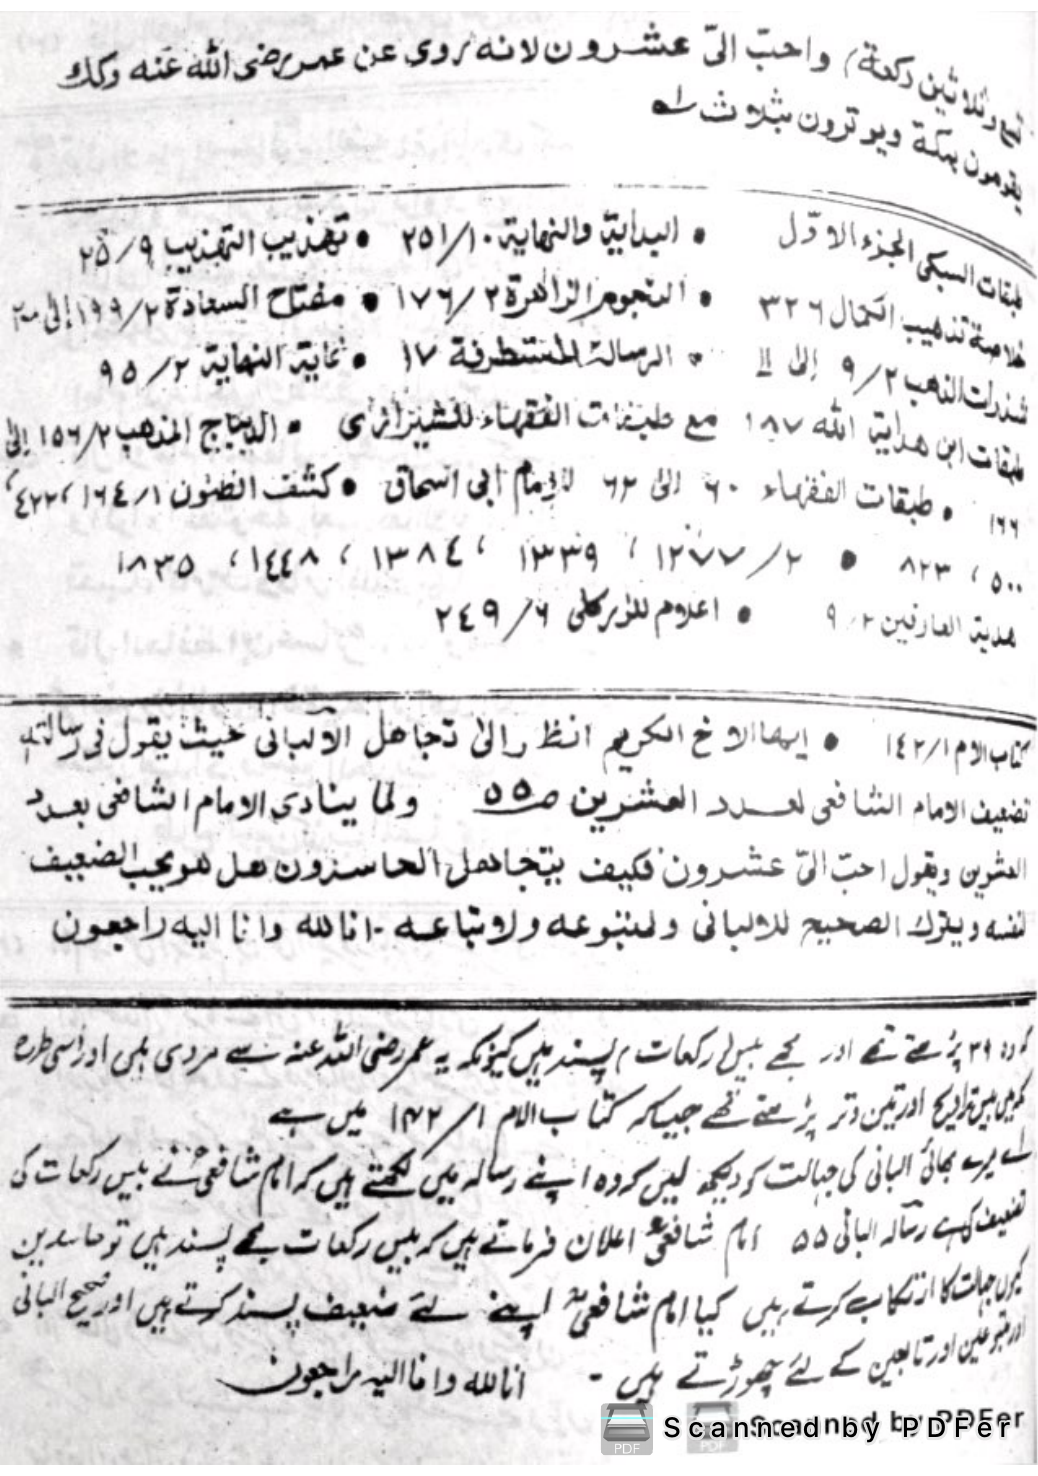 تسع وثلاثين ركعة) واحبّ الیّ عشرون لانه روی عن عمر رضی الله عنه وكذلك
يقومون بمكة ويوترون بثلاث اه
طبقات السبكی الجزء الاوّل • البداية والنهاية ١٠/٢٥١ • تهذيب التهذيب ٩/٢٥
خلاصة تذهيب الكمال ٣٢٦ • النجوم الزاهرة ٢/١٧٦ • مفتاح السعادة ٢/١٩٩ إلی ٢٠٠
شذرات الذهب ٢/٩ إلی ١١ • الرسالة المستطرفة ١٧ • غاية النهاية ٢/٩٥
طبقات ابن هداية الله ١٨٧ مع طبقات الفقهاء للشيرازی • الديباج المذهب ٢/١٥٦ إلی
١٦٦ • طبقات الفقهاء ٦٠ الی ٦٢ للإمام ابی اسحاق • كشف الظنون ١/١٦٤، ٤٢٢،
٥٠٠، ٨٢٣ • ٢/١٢٧٧، ١٣٣٩، ١٣٨٤، ١٤٤٨، ١٨٣٥
هدية العارفين ٢/٩ • اعلام للزركلی ٦/٢٤٩
كتاب الام ١/١٤٢ • ايها الاخ الكريم انظر الیٰ تجاهل الالبانی حيث يقول فی رسالته
تضعيف الامام الشافعی لعدد العشرين ص ٥٥ ولما ينادی الامام الشافعی بعدد
العشرين ويقول احبّ الیّ عشرون فكيف يتجاهل الحاسدون هل هو يحب الضعيف
لنفسه ويترك الصحيح للالبانی ولمتبوعه ولاتباعه - انا لله وانا اليه راجعون
کہ وہ ۳۹ پڑھتے تھے اور مجھے بیس رکعات پسند ہیں کیونکہ یہ عمر رضی اللہ عنہ سے مروی ہیں اور اسی طرح
مکہ میں بیس تراویح اور تین وتر پڑھتے تھے جیسا کہ کتاب الام ۱/۱۴۲ میں ہے
اے میرے بھائی البانی کی جہالت کو دیکھ لیں کہ وہ اپنے رسالہ میں لکھتے ہیں کہ امام شافعیؒ نے بیس رکعات کی
تضعیف کی ہے رسالہ البانی ۵۵ امام شافعیؒ اعلان فرماتے ہیں کہ بیس رکعات مجھے پسند ہیں تو حاسدین
کیوں جہالت کا ارتکاب کرتے ہیں کیا امام شافعیؒ اپنے لئے ضعیف پسند کرتے ہیں اور صحیح البانی
اور متبوعین اور تابعین کے لئے چھوڑتے ہیں - انا لله وانا اليه راجعون
Scanned by PDFer
Scanned by PDFer